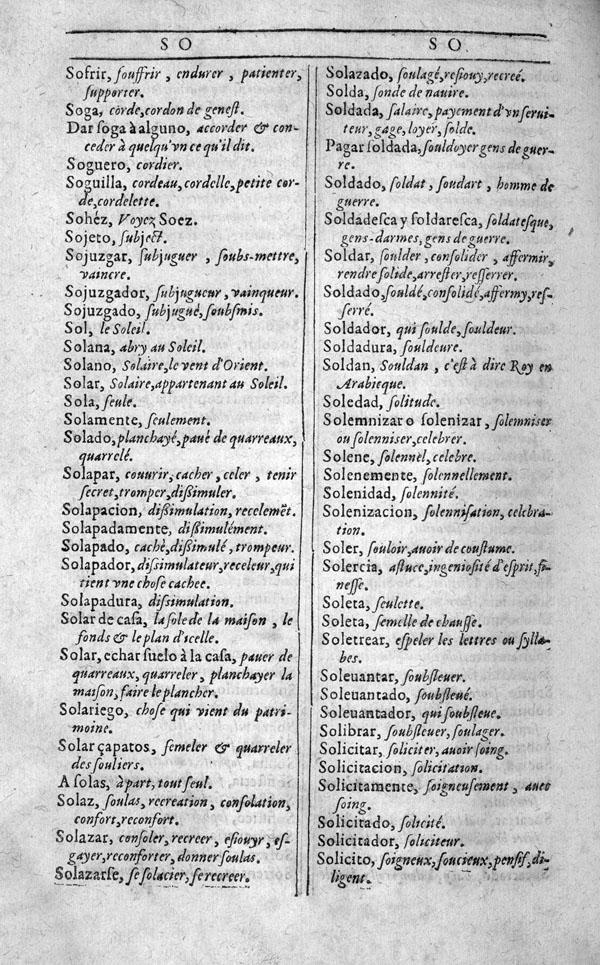 SO
Sofrir, ſouffrir, endurer, patienter,
ſupporter.
Soga, corde, cordon de geneſt.
Dar ſoga à alguno, accorder & con-
ceder à quelqu'vn ce qu'il dit.
Soguero, cordier.
Soguilla, cordeau, cordelle, petite cor-
de, cordelette.
Sohéz, Voyez Soez.
Sojeto, ſubject.
Sojuzgar, ſubjuguer, ſoubs-mettre,
vaincre.
Sojuzgador, ſubjugueur, vainqueur.
Sojuzgado, ſubjugué, ſoubſmis.
Sol, le Soleil.
Solana, abry au Soleil.
Solano, Solaire, le vent d'Orient.
Solar, Solaire, appartenant au Soleil.
Sola, ſeule.
Solamente, ſeulement.
Solado, planchayé, paué de quarreaux,
quarrelé.
Solapar, couurir, cacher, celer, tenir
ſecret, tromper, dißimuler.
Solapacion, dißimulation, recelemẽt.
Solapadamente, dißimulément.
Solapado, caché, dißimulé, trompeur.
Solapador, dißimulateur, receleur, qui
tient vne choſe cachee.
Solapadura, diſsimulation.
Solar de caſa, la ſole de la maiſon, le
fonds & le plan d'icelle.
Solar, echar ſuelo à la caſa, pauer de
quarreaux, quarreler, planchayer la
maiſon, faire le plancher.
Solariego, choſe qui vient du patri-
moine.
Solar çapatos, ſemeler & quarreler
des ſouliers.
A ſolas, à part, tout ſeul.
Solaz, ſoulas, recreation, conſolation,
confort, reconfort.
Solazar, conſoler, recreer, eſiouyr, eſ-
gayer, reconforter, donner ſoulas.
Solazarſe, ſe ſolacier, ſe recreer.
SO.
Solazado, ſoulagé, reſiouy, recreé.
Solda, ſonde de nauire.
Soldada, ſalaire, payement d'vn ſerui-
teur, gage, loyer, ſolde.
Pagar ſoldada, ſouldoyer gens de guer-
re.
Soldado, ſoldat, ſoudart, homme de
guerre.
Soldadeſca y ſoldareſca, ſoldatesque,
gens-darmes, gens de guerre.
Soldar, ſoulder, conſolider, affermir,
rendre ſolide, arreſter, reſſerrer.
Soldado, ſouldé, conſolidé, affermy, reſ-
ſerré.
Soldador, qui ſoulde, ſouldeur.
Soldadura, ſouldeure.
Soldan, Souldan, c'eſt à dire Roy en
Arabieque.
Soledad, ſolitude.
Solemnizar o ſolenizar, ſolemniſer
ou ſolenniſer, celebrer.
Solene, ſolennel, celebre.
Solenemente, ſolennellement.
Solenidad, ſolennité.
Solenizacion, ſolenniſation, celebra-
tion.
Soler, ſouloir, auoir de couſtume.
Solercia, aſtuce, ingenioſité d'eſprit, fi-
neſſe.
Soleta, ſeulette.
Soleta, ſemelle de chauſſe.
Soletrear, eſpeler les lettres ou ſylla-
bes.
Soleuantar, ſoubſleuer.
Soleuantado, ſoubſleué.
Soleuantador, qui ſoubſleue.
Solibrar, ſoubſleuer, ſoulager.
Solicitar, ſoliciter, auoir ſoing.
Solicitacion, ſolicitation.
Solicitamente, ſoigneuſement, auec
ſoing.
Solicitado, ſolicité.
Solicitador, ſoliciteur.
Solicito, ſoigneux, ſoucieux, penſif, di-
ligent.